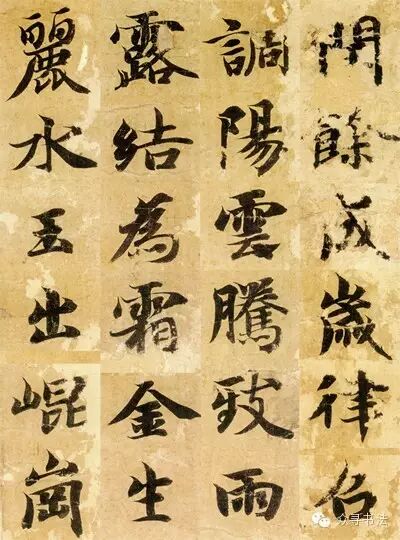 閏餘成歲律召
調陽雲騰致雨
露結為霜金生
麗水玉出崐崗
众寻书法